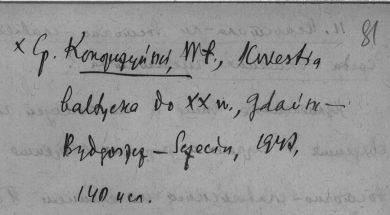 81
× Ср. Konopczyński, Wł., Kwestia
bałtycka do XX w., Gdańsk –
Bydgoszcz – Szczecin, 1947,
140 исл.